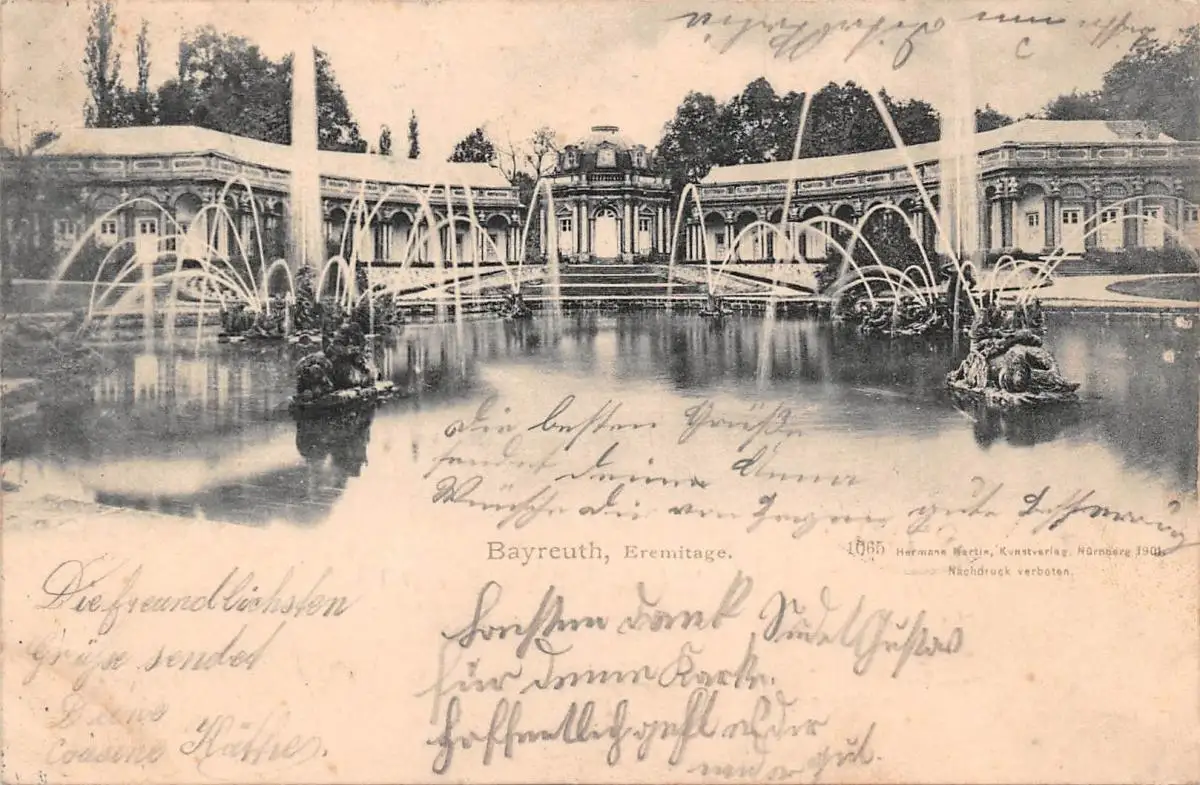 Die besten Grüße
sendet deine Anna
Wünsche dir von Herzen gute Besserung
Bayreuth, Eremitage.
1065 Hermann Martin, Kunstverlag, Nürnberg 1901.
Nachdruck verboten.
Die freundlichsten
Grüße sendet
Deine
Cousine Käthe.
Besten Dank
Gustav
für deine Karte.
Hoffentlich geht es dir
wieder gut.